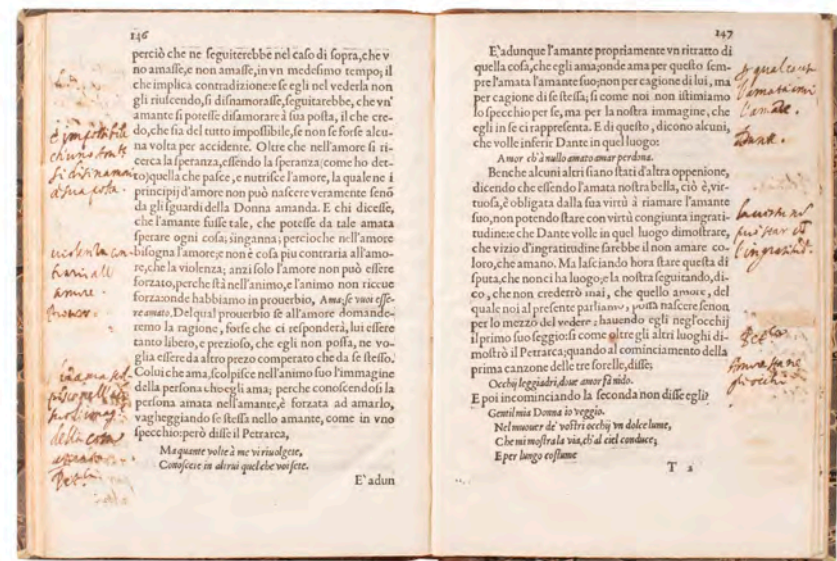 146
perciò che ne seguiterebbe nel caso di sopra, che v
no amasse, e non amasse, in vn medesimo tempo; il
che implica contradizione: e se egli nel vederla non
gli riuscendo, si disnamorasse, seguitarebbe, che vn'
amante si potesse disamorare à sua posta, il che cre-
do, che sia del tutto impossibile, se non se forse alcu-
na volta per accidente. Oltre che nell'amore si ri-
cerca la speranza, essendo la speranza (come ho det-
to) quella che pasce, e nutrisce l'amore, la quale ne i
principij d'amore non può nascere veramente senō
da gli sguardi della Donna amanda. E chi dicesse,
che l'amante fusse tale, che potesse da tale amata
sperare ogni cosa, singanna; percioche nell'amore
bisogna l'amore; e non è cosa piu contraria all'amo-
re, che la violenza; anzi solo l'amore non può essere
forzato, perche stà nell'animo, e l'animo non riceue
forza: onde habbiamo in prouerbio, Ama, se vuoi esse-
re amato. Del qual prouerbio se all'amore domande-
remo la ragione, forse che ci responderà, lui essere
tanto libero, e prezioso, che egli non possa, ne vo-
glia essere da altro prezo comperato che da se stesso.
Colui che ama, scolpisce nell'animo suo l'immagine
della persona che egli ama; perche conoscendosi la
persona amata nell'amante, è forzata ad amarlo,
vagheggiando se stessa nello amante, come in vno
specchio: però disse il Petrarca,
Ma quante volte à me vi riuolgete,
Conoscete in altrui quel che voi sete.
E' adun
è impossibile
ch'uno amante
si disinnamori
à sua posta.
violenza con-
traria all
amore.
147
E' adunque l'amante propriamente vn ritratto di
quella cosa, che egli ama; onde ama per questo sem-
pre l'amata l'amante suo; non per cagione di lui, ma
per cagione di se stessa; si come noi non istimiamo
lo specchio per se, ma per la nostra immagine, che
egli in se ci rappresenta. E di questo, dicono alcuni,
che volle inferir Dante in quel luogo:
Amor ch'à nullo amato amar perdona.
Benche alcuni altri siano stati d'altra oppenione,
dicendo che essendo l'amata nostra bella, ciò è, vir-
tuosa, è obligata dalla sua virtù à riamare l'amante
suo, non potendo stare con virtù congiunta ingrati-
tudine: e che Dante volle in quel luogo dimostrare,
che vizio d'ingratitudine sarebbe il non amare co-
loro, che amano. Ma lasciando hora stare questa di
sputa, che non ci ha luogo; e la nostra seguitando, di-
co, che non crederrò mai, che quello amore, del
quale noi al presente parliamo, possa nascere senon
per lo mezzo del vedere; hauendo egli negl'occhij
il primo suo seggio: si come oltre gli altri luoghi di-
mostrò il Petrarca; quando al cominciamento della
prima canzone delle tre sorelle, disse;
Occhij leggiadri, doue amor fà nido.
E poi incominciando la seconda non disse egli?
Gentil mia Donna io veggio.
Nel muouer de' vostri occhij vn dolce lume,
Che mi mostra la via, ch'al ciel conduce;
E per lungo costume
T 2
l'amata ami
l'amante.
Dante.
l'ingratitud.
Amore stà ne
gli occhi